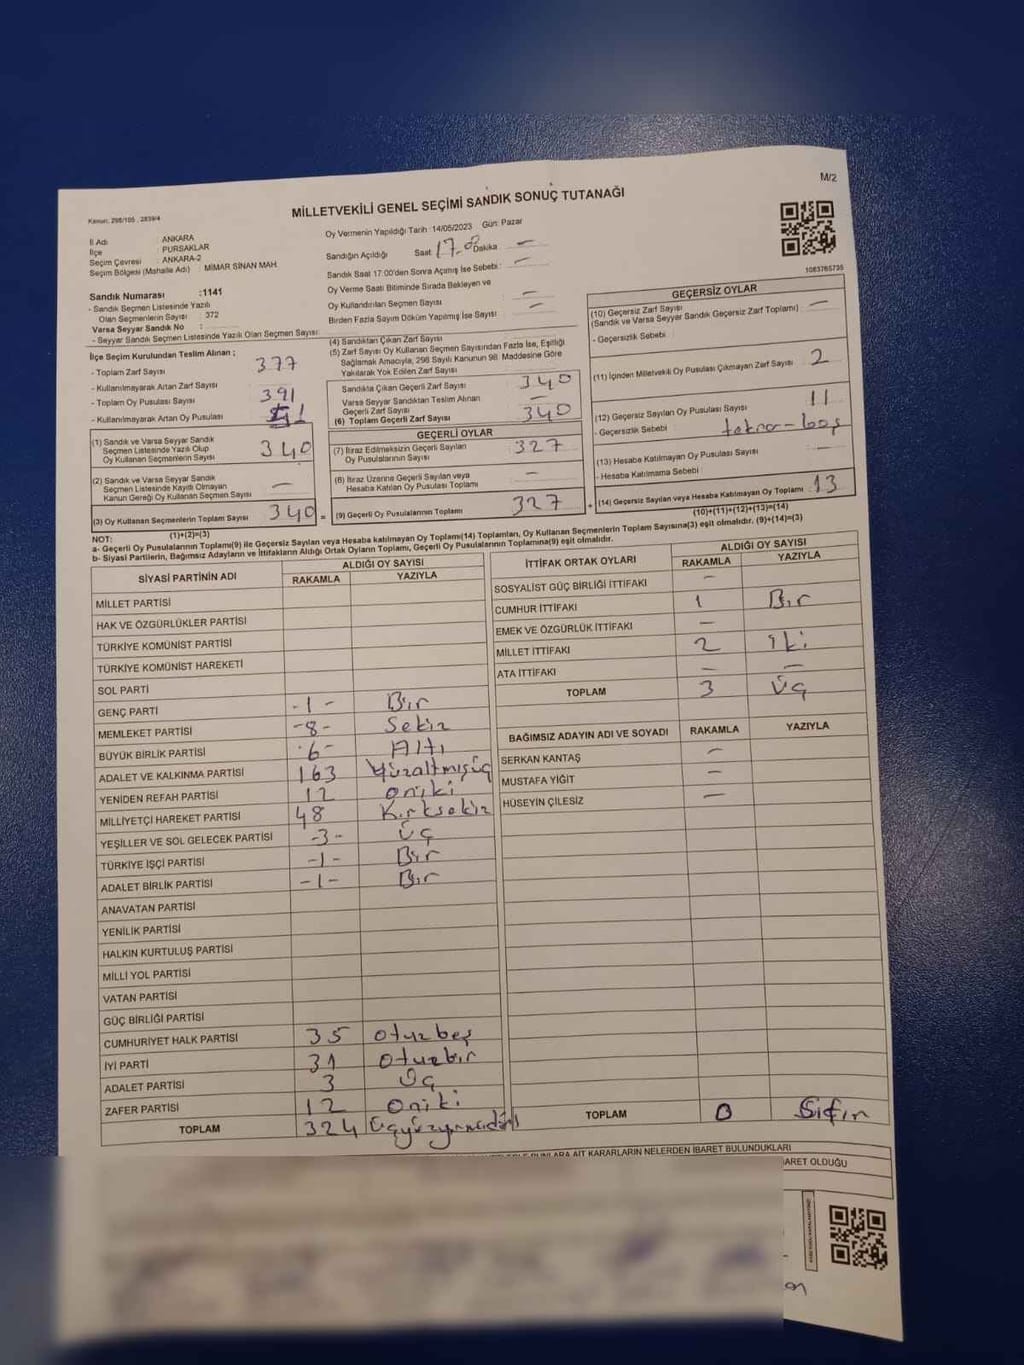 M/2
Kanun: 298/105 , 2839/4
MİLLETVEKİLİ GENEL SEÇİMİ SANDIK SONUÇ TUTANAĞI
İl Adı : ANKARA
İlçe : PURSAKLAR
Seçim Çevresi : ANKARA-2
Seçim Bölgesi (Mahalle Adı) : MİMAR SİNAN MAH.
Oy Vermenin Yapıldığı Tarih :14/05/2023 Gün: Pazar
Sandığın Açıldığı Saat Dakika –
Sandık Saat 17:00'den Sonra Açılmış İse Sebebi : –
Oy Verme Saati Bitiminde Sırada Bekleyen ve
Oy Kullandırılan Seçmen Sayısı –
Birden Fazla Sayım Döküm Yapılmış İse Sayısı –
1083765735
Sandık Numarası :1141
- Sandık Seçmen Listesinde Yazılı
Olan Seçmenlerin Sayısı : 372
Varsa Seyyar Sandık No :
- Seyyar Sandık Seçmen Listesinde Yazılı Olan Seçmen Sayısı:
İlçe Seçim Kurulundan Teslim Alınan ;
- Toplam Zarf Sayısı 377
- Kullanılmayarak Artan Zarf Sayısı
- Toplam Oy Pusulası Sayısı 391
- Kullanılmayarak Artan Oy Pusulası
(1) Sandık ve Varsa Seyyar Sandık
Seçmen Listesinde Yazılı Olup
Oy Kullanan Seçmenlerin Sayısı 340
(2) Sandık ve Varsa Seyyar Sandık
Seçmen Listesinde Kayıtlı Olmayan
Kanun Gereği Oy Kullanan Seçmen Sayısı –
(3) Oy Kullanan Seçmenlerin Toplam Sayısı 340 =
(1)+(2)=(3)
(4) Sandıktan Çıkan Zarf Sayısı
(5) Zarf Sayısı Oy Kullanan Seçmen Sayısından Fazla İse, Eşitliği
Sağlamak Amacıyla, 298 Sayılı Kanunun 98. Maddesine Göre
Yakılarak Yok Edilen Zarf Sayısı
Sandıkta Çıkan Geçerli Zarf Sayısı 340
Varsa Seyyar Sandıktan Teslim Alınan
Geçerli Zarf Sayısı –
(6) Toplam Geçerli Zarf Sayısı 340
GEÇERLİ OYLAR
(7) İtiraz Edilmeksizin Geçerli Sayılan
Oy Pusulalarının Sayısı 327
(8) İtiraz Üzerine Geçerli Sayılan veya
Hesaba Katılan Oy Pusulası Toplamı –
(9) Geçerli Oy Pusulalarının Toplamı 327 +
GEÇERSİZ OYLAR
(10) Geçersiz Zarf Sayısı –
(Sandık ve Varsa Seyyar Sandık Geçersiz Zarf Toplamı)
- Geçersizlik Sebebi :
(11) İçinden Milletvekili Oy Pusulası Çıkmayan Zarf Sayısı 2
(12) Geçersiz Sayılan Oy Pusulası Sayısı 11
- Geçersizlik Sebebi
(13) Hesaba Katılmayan Oy Pusulası Sayısı –
- Hesaba Katılmama Sebebi :
(14) Geçersiz Sayılan veya Hesaba Katılmayan Oy Toplamı 13
(10)+(11)+(12)+(13)=(14)
NOT:
a- Geçerli Oy Pusulalarının Toplamı(9) ile Geçersiz Sayılan veya Hesaba katılmayan Oy Toplamı(14) Toplamları, Oy Kullanan Seçmenlerin Toplam Sayısına(3) eşit olmalıdır. (9)+(14)=(3)
b- Siyasi Partilerin, Bağımsız Adayların ve İttifakların Aldığı Ortak Oyların Toplamı, Geçerli Oy Pusulalarının Toplamına(9) eşit olmalıdır.
SİYASİ PARTİNİN ADI ALDIĞI OY SAYISI
RAKAMLA YAZIYLA
MİLLET PARTİSİ
HAK VE ÖZGÜRLÜKLER PARTİSİ
TÜRKİYE KOMÜNİST PARTİSİ
TÜRKİYE KOMÜNİST HAREKETİ
SOL PARTİ
GENÇ PARTİ -1- Bir
MEMLEKET PARTİSİ -8- Sekiz
BÜYÜK BİRLİK PARTİSİ -6- Altı
ADALET VE KALKINMA PARTİSİ 163 Yüzaltmışüç
YENİDEN REFAH PARTİSİ 12 oniki
MİLLİYETÇİ HAREKET PARTİSİ 48 Kırksekiz
YEŞİLLER VE SOL GELECEK PARTİSİ -3- üç
TÜRKİYE İŞÇİ PARTİSİ -1- Bir
ADALET BİRLİK PARTİSİ -1- Bir
ANAVATAN PARTİSİ
YENİLİK PARTİSİ
HALKIN KURTULUŞ PARTİSİ
MİLLİ YOL PARTİSİ
VATAN PARTİSİ
GÜÇ BİRLİĞİ PARTİSİ
CUMHURİYET HALK PARTİSİ 35 otuzbeş
İYİ PARTİ 31 otuzbir
ADALET PARTİSİ 3 Üç
ZAFER PARTİSİ 12 Oniki
TOPLAM 324 üçyüzyirmidört
İTTİFAK ORTAK OYLARI ALDIĞI OY SAYISI
RAKAMLA YAZIYLA
SOSYALİST GÜÇ BİRLİĞİ İTTİFAKI –
CUMHUR İTTİFAKI 1 Bir
EMEK VE ÖZGÜRLÜK İTTİFAKI –
MİLLET İTTİFAKI 2 iki
ATA İTTİFAKI – –
TOPLAM 3 üç
BAĞIMSIZ ADAYIN ADI VE SOYADI RAKAMLA YAZIYLA
SERKAN KANTAŞ –
MUSTAFA YİĞİT –
HÜSEYİN ÇİLESİZ –
TOPLAM 0 Sıfır
AİT KARARLARIN NELERDEN İBARET BULUNDUKLARI
BARET OLDUĞU